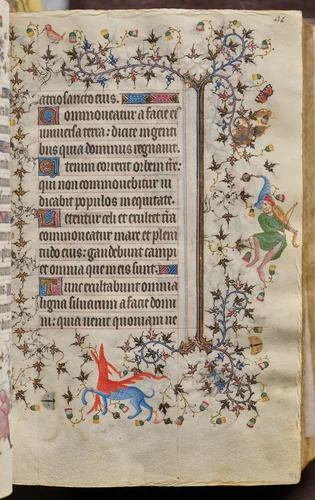 46
atrio sancto eius.
Commoueatur a facie ei
uniuersa terra: dicite in genti
bus quia dominus regnauit.
Etenim correxit orbem tre:
qui non commouebitur iu
dicabit populos in equitate.
Letentur celi et exultet tra
commoueatur mare et pleni
tudo eius: gaudebunt campi
et omnia que in eis sunt.
Tunc exultabunt omnia
ligna siluarum a facie domi
ni: quia uenit quoniam ue